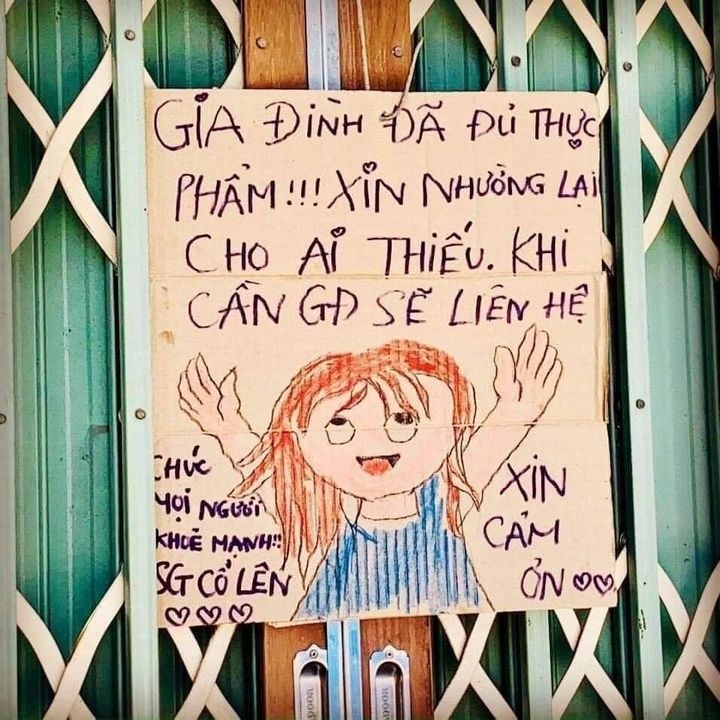 GIA ĐÌNH ĐÃ ĐỦ THỰC
PHẨM!!! XIN NHƯỜNG LẠI
CHO AI THIẾU. KHI
CẦN GĐ SẼ LIÊN HỆ
CHÚC
MỌI NGƯỜI
KHOẺ MẠNH!!
SG CỐ LÊN
♡♡♡
XIN
CẢM
ƠN ♡♡